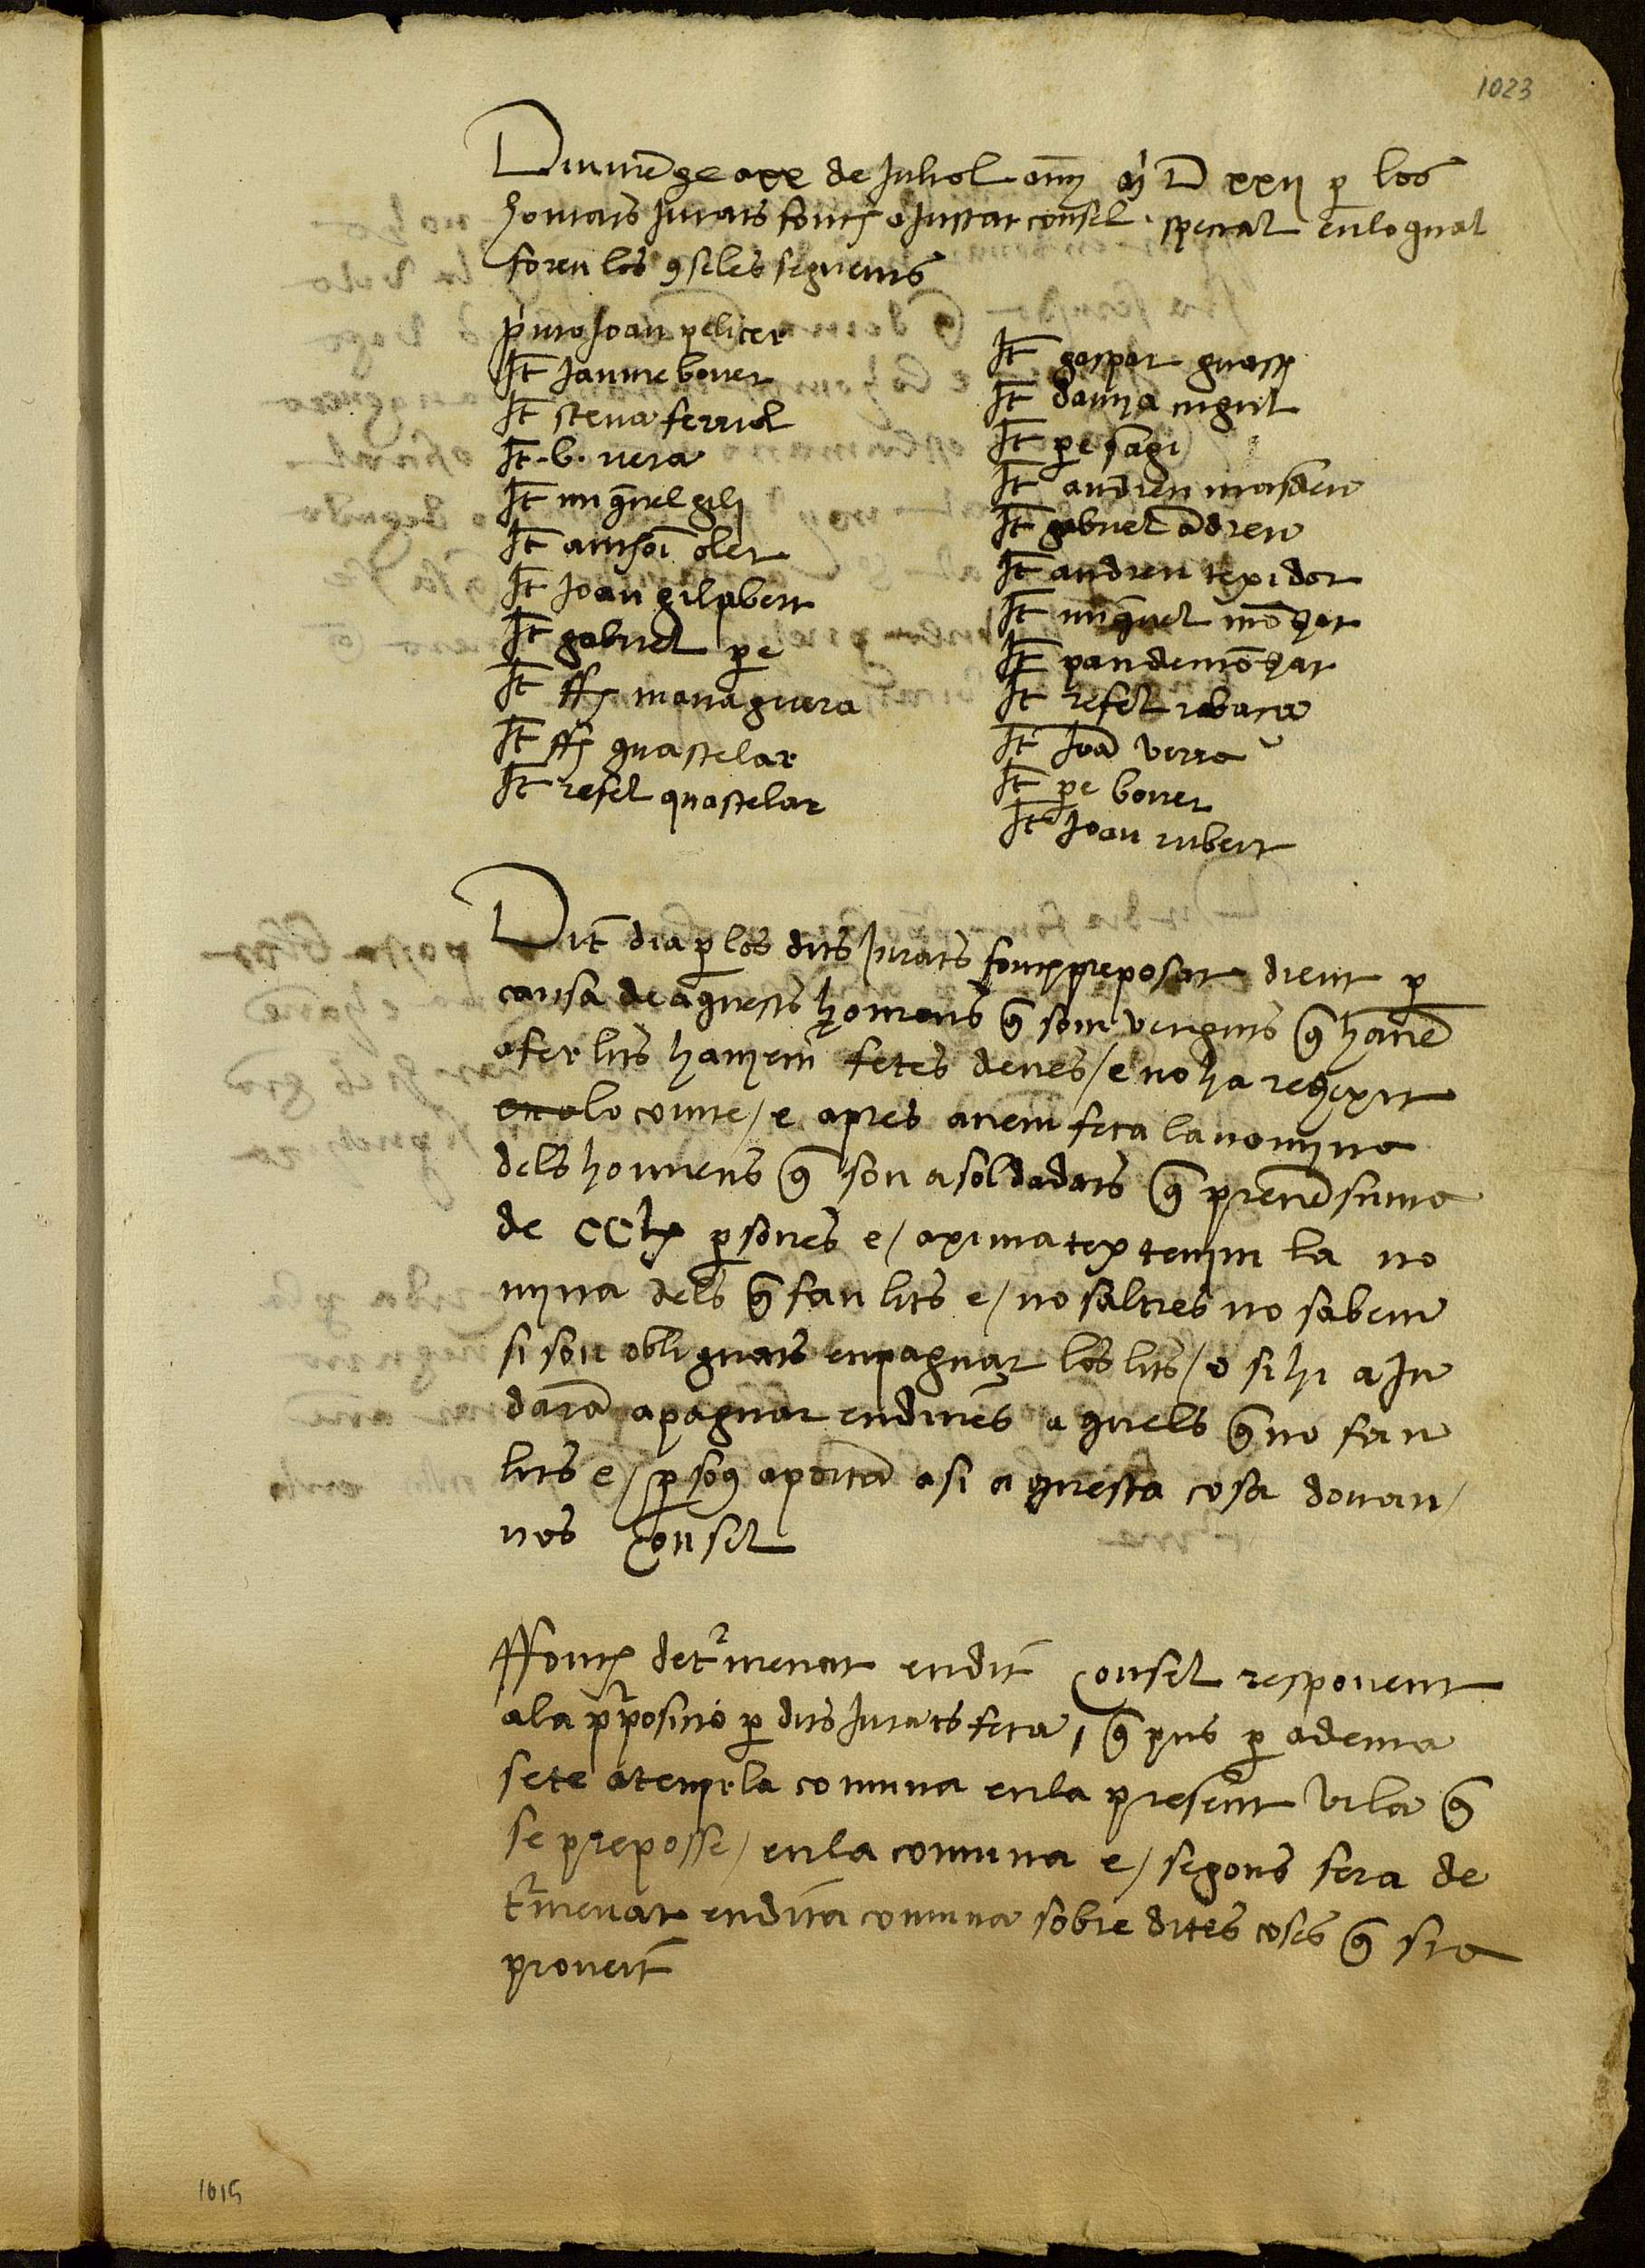 1023
Diume̅ge a xx de Juliol any M D xxij p los
honrats Jurats fonch aJustat consel spetial en lo qual
foren los 9seles seguents
primo Joan peliter
It Jaume bouer
It steua ferriol
It .b. uera
It miq̅uel gili
It anthoi̅ oler
It Joan gilabert
It gabriel pe
It ffr managuera
It ffr quastelar
It refel quastelar
It gaspar guasch
It damia cugul
It pe sagi
It andreu masdeu
It gabriel a̅dreu
It andreu texidor
It miq̅uel mo̅bar
It pau de mo̅bar
It refel rabasa
It Joa̅ verra
It pe bouer
It Joan rubert
Dit dia p los dits Jurats fonch preposat dient p
causa de aquests homens q̅ som venguts q̅ haue̅
a fer lits hauem fetes denes / e no ha rehexit
en a lo comte / e apres auem feta la nomina
dels homens q̅ son asoldadats q̅ prene̅ suma
de CClx psones e / aximatex tenim la no
mina dels q̅ fan lits e / nosaltres no sabem
si son obliguats en paguar los lits / o si hi aJu
dara̅ a paguar en dines aquels q̅ no fan
lits e / p so9 aporta̅ asi aquesta cosa donau /
nos Consel
ffonch det'menat en dit Consel responent
a la pposicio p dits Jurats feta / q̅ pus p adema
se te a tenir la comuna en la present vila q̅
se preposse / en la comuna e / segons sera de
t'menat en dita comuna sobre dites coses q̅ sia
proueit
1015